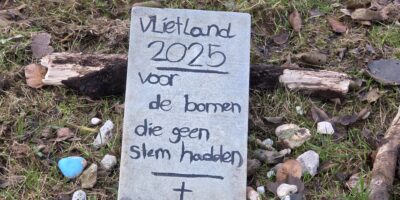 VLietland
2025
voor
de bomen
die geen
stem hadden